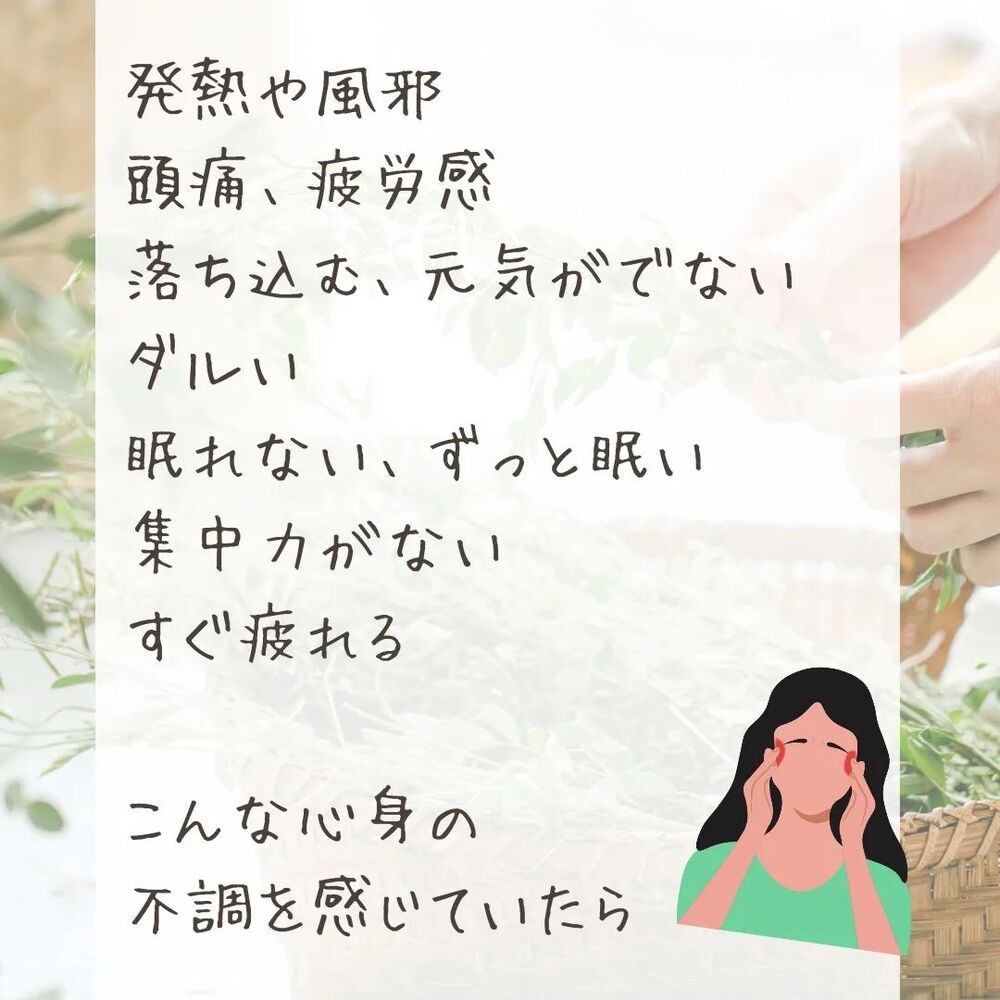 発熱や風邪
頭痛、疲労感
落ち込む、元気がでない
ダルい
眠れない、ずっと眠い
集中力がない
すぐ疲れる
こんな心身の
不調を感じていたら